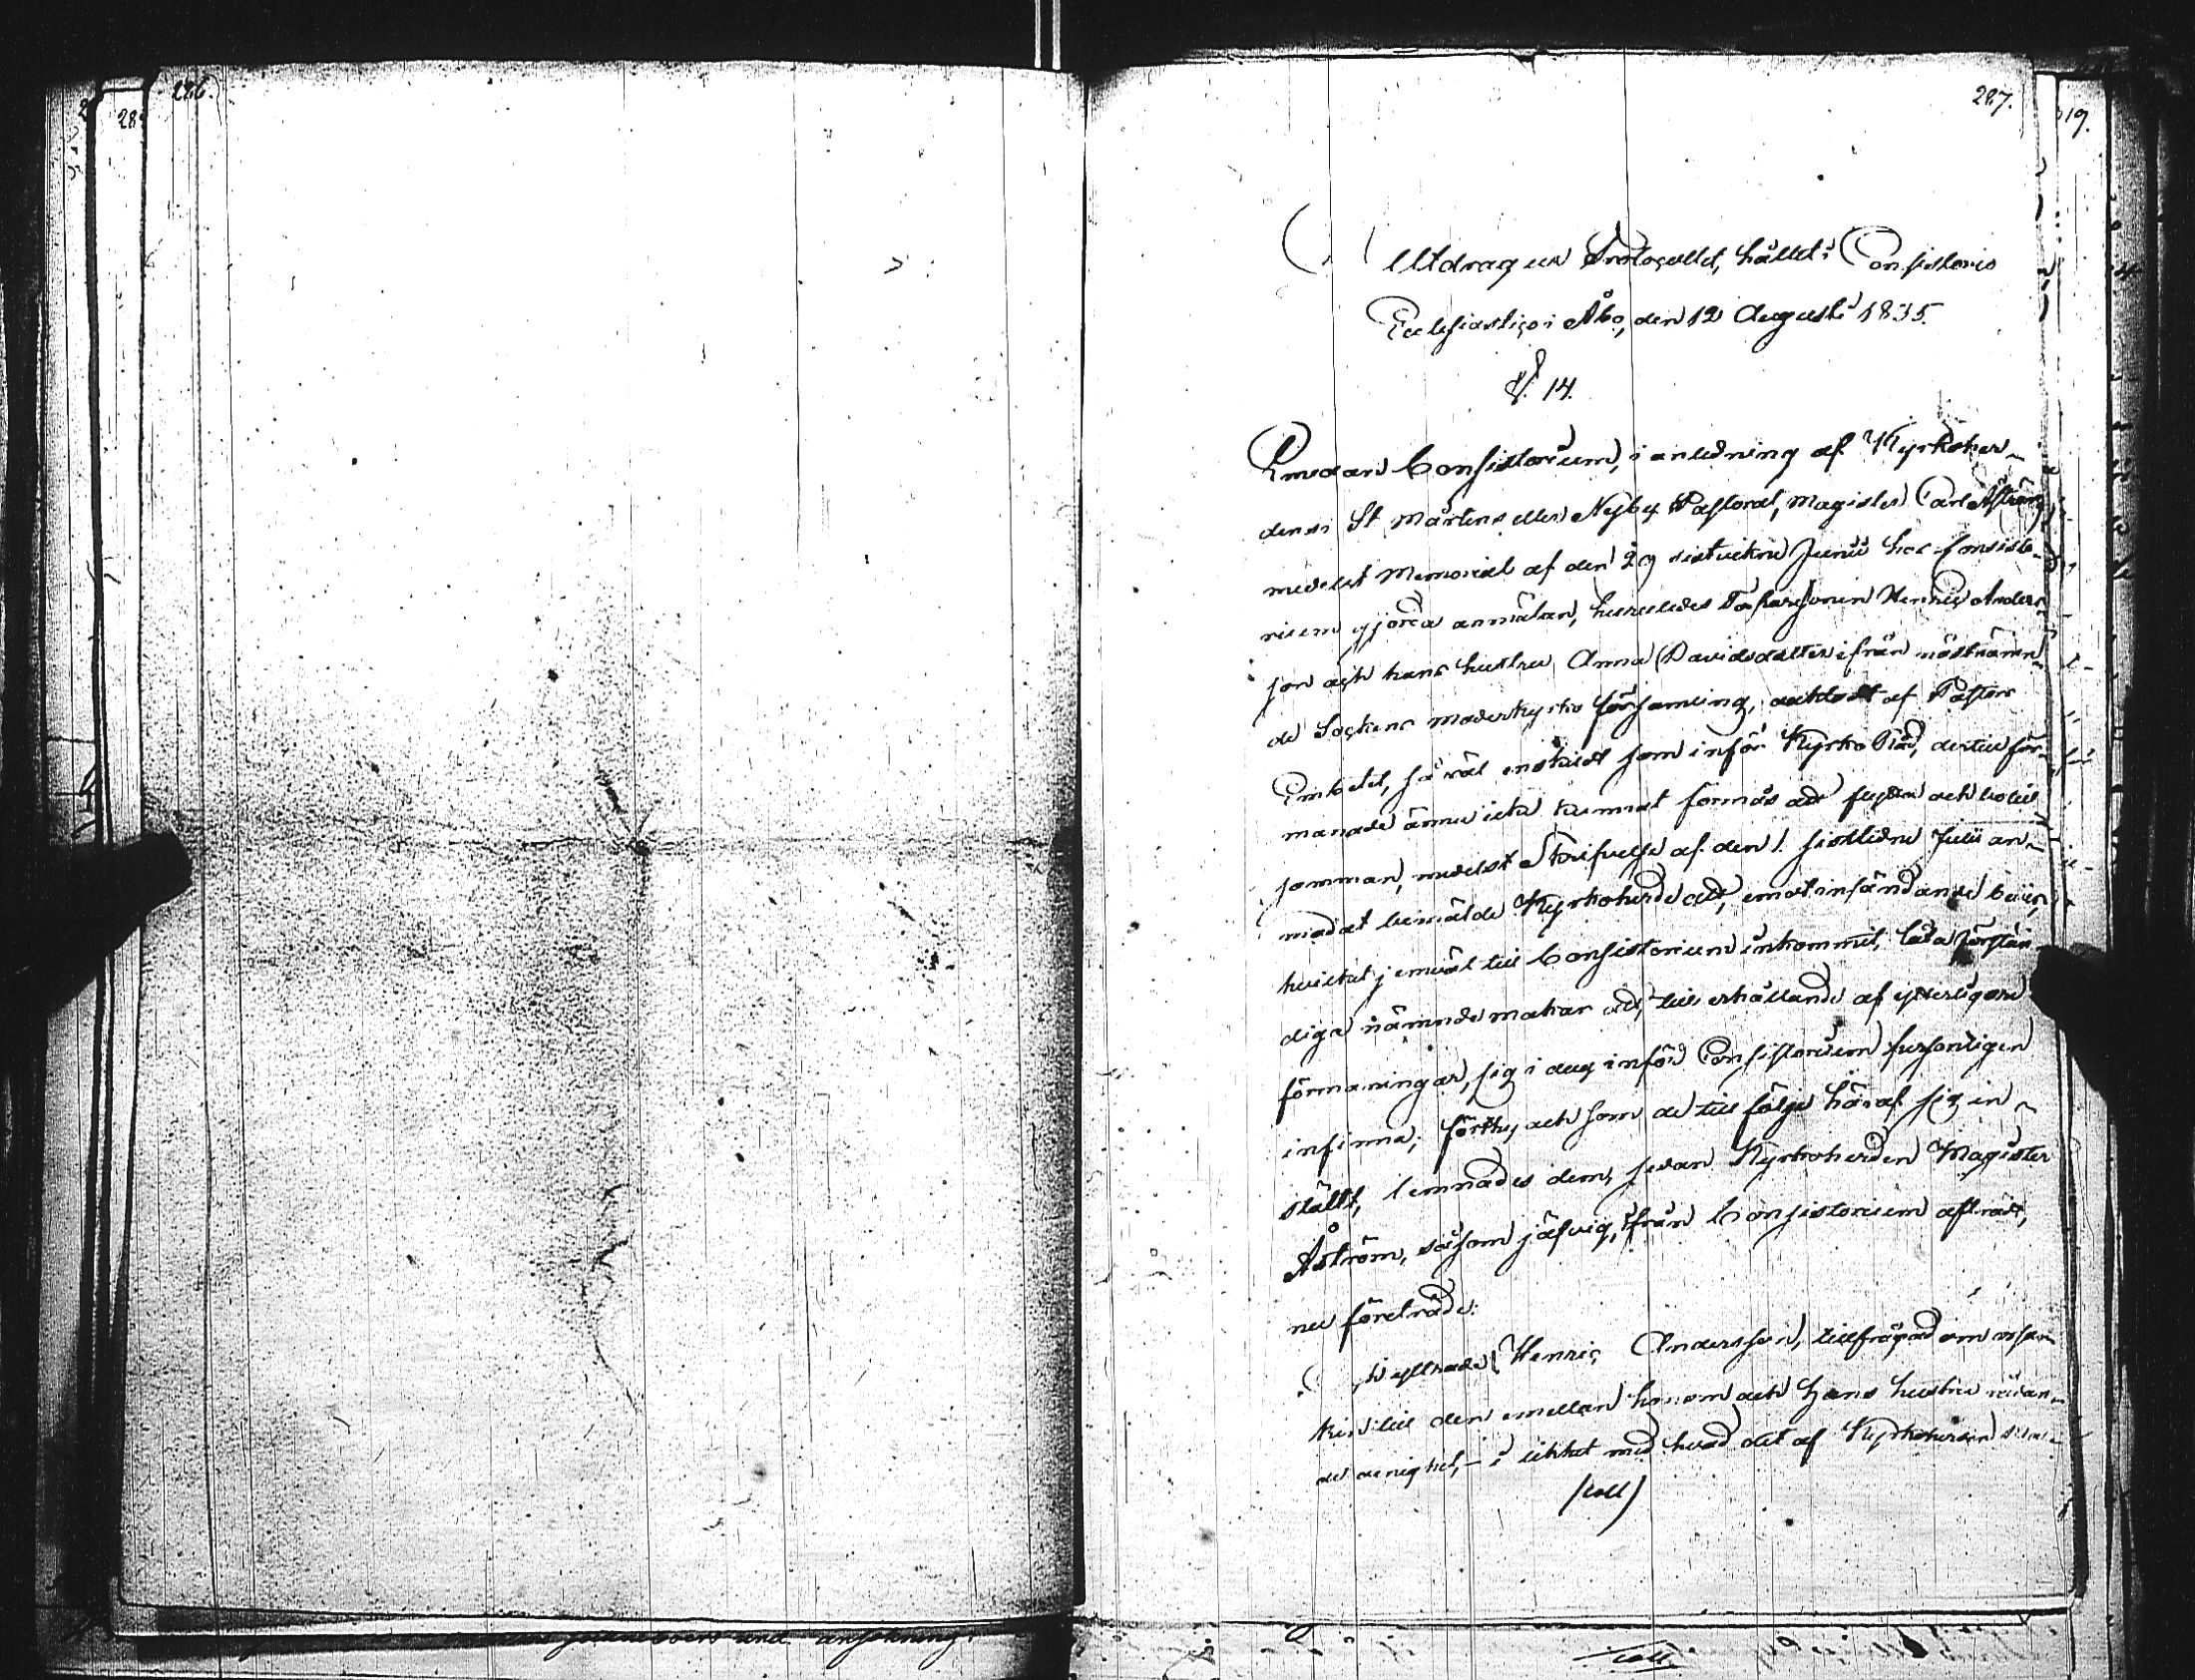 286.
287.
19.
Utdrag ur Protocollet, hållet i Consistorio
Ecclesiastico i Åbo, den 12 Augusti 1835.
§. 14.
Emedan Consistorium, i anledning af Kyrkoher-
dens i St Mårtens eller Nyby Pastorat, Magister Carl Åström
medelst Memorial af den 29 sistvekne Junii hos Consisto-
rium gjorda anmälan, hurusledes Torparsonen Henric Anders-
son och hans hustru Anna Davidsdotter ifrån nästnämn-
de Sockens moderkyrko församling, oaktadt af Pastors
Embetet, så väl enskildt som inför Kyrko Råd, dertill för-
manade ännu icke kunnat förmås att flytta och bo till
samman, medelst Skrifvelse af den 1. sistledne Julii an-
modat bemälde Kyrkoherde att, emot insändande bevis,
hvilket jemväl till Consistorium inkommit, låta förstän-
diga nämnde makar att, till erhållande af ytterligare
förmaningar, sig i dag inför Consistorium personligen
infinna; förthy och som de till följe häraf sig in-
ställt, lemnades dem, sedan Kyrkoherden Magister
Åström, såsom jäfvig, ifrån Consistorium afträdt,
nu företräde.
Henric Andersson, tillfrågad om orsa-
ken till den emellan honom och hans hustru rådan-
de oenighet, - i likhet med hvad det af Kyrkoherden
/coll/